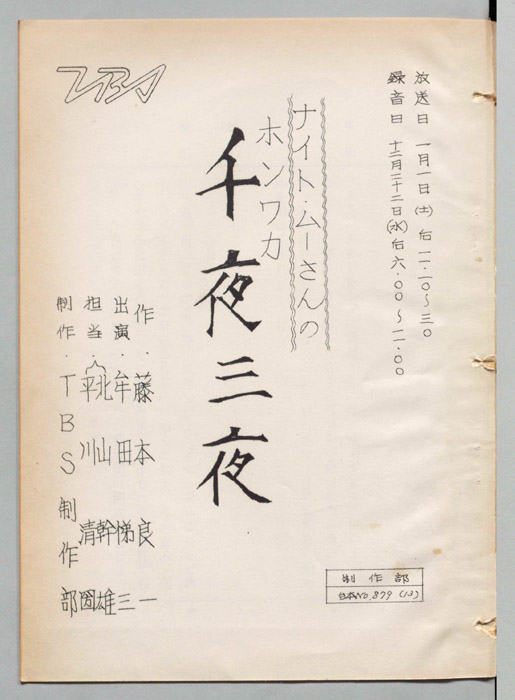 放送日 一月一日(土)后一一・二〇～三〇
録音日 十二月二十二日(水)后六・〇〇～一一・〇〇
ナイト・ムーさんの
ホンワカ
千夜三夜
作・藤本良一
出演・牟田悌三
担当・北山幹雄
平川清圀
制作・TBS制作部
TBS
制作部
台本No.879(13)